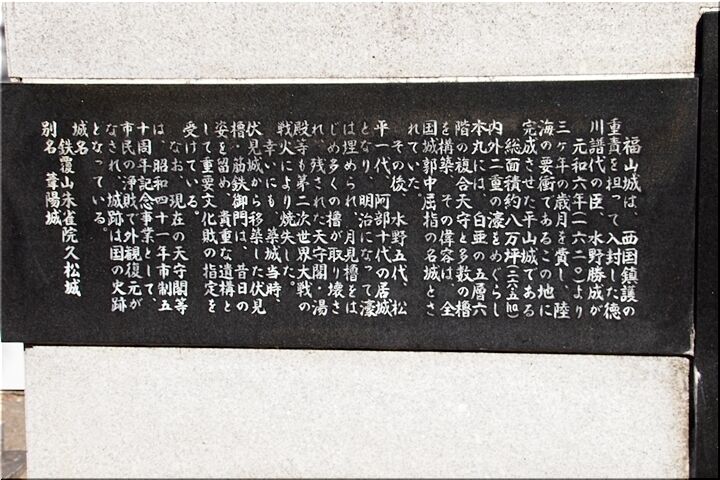 福山城は、西国鎮護の
重責を担って入封した徳
川譜代の臣、水野勝成が
元和六年(一六二〇)より
三ヶ年の歳月を費し、陸
海の要衝であるこの地に
完成させた平山城である
総面積約八万坪(二六・五ha)
内外二重の濠をめぐらし
本丸には、白亜の五層六
階の複合天守と多数の櫓
を構築、その偉容は、全
国城郭中屈指の名城とさ
れていた。
その後、水野五代、松
平一代、阿部十代の居城
となり、明治になって濠
は埋められ、月見櫓をは
じめ多くの櫓が取り壊さ
れ、残された天守閣・湯
殿等も第二次世界大戦の
戦火により焼失した。
幸いにも、築城当時、
伏見城から移築した伏見
櫓・筋鉄御門は、昔日の
姿を留め、貴重な遺構と
して重要文化財の指定を
受けている。
なお、現在の天守閣等
は、昭和四十一年市制五
十周年記念事業として、
市民の浄財で外観復元が
なされ、城跡は国の史跡
となっている。
城名
鉄覆山朱雀院久松城
別名 葦陽城